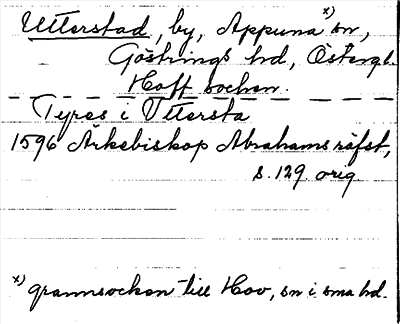 Utterstad, by, Appuna x) sn,
Göstrings hd, Östergl.
Hoff sochen.
Tyres i Uttersta
1596 Ärkebiskop Abrahams räfst,
s. 129 orig
x) grannsocken till Hov, sn i sma hd.